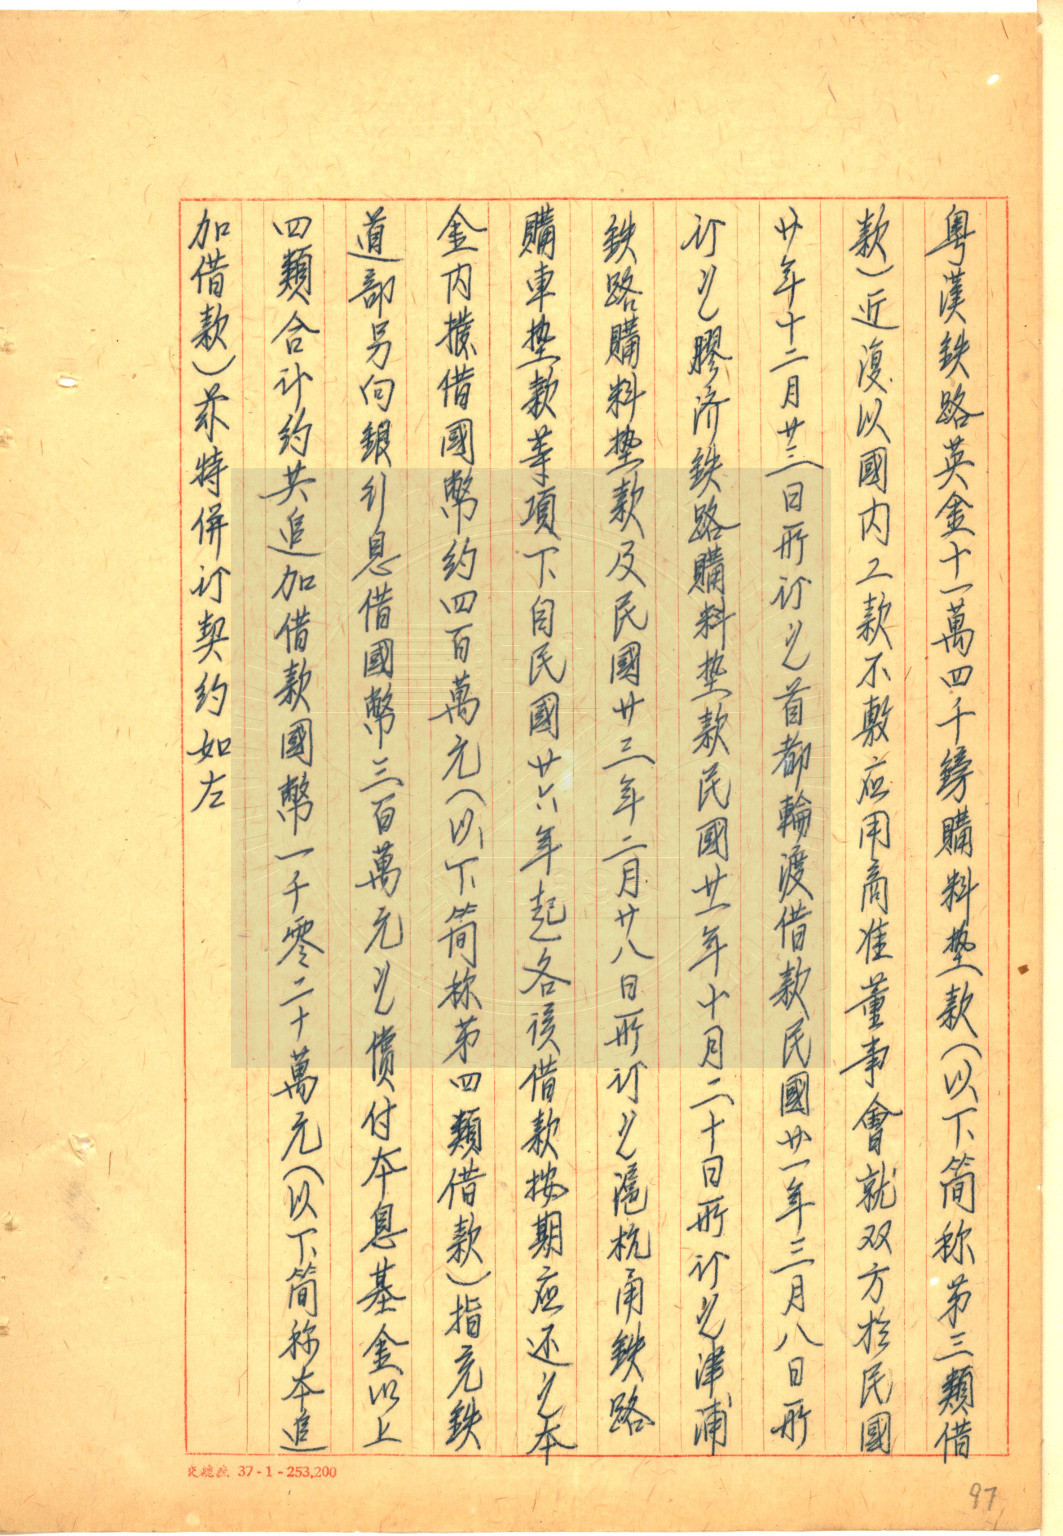 粵漢鉄路英金十一萬四千鎊購料墊款(以下简称第三類借
款)近復以國内工款不敷应用商准董事會就双方於民國
廿年十二月廿三日所订之首都輪渡借款民國廿一年三月八日所
订之膠济鉄路購料墊款民國廿一年十月二十日所订之津浦
鉄路購料墊款及民國廿三年二月廿八日所订之滬杭甬鉄路
購車墊款等項下自民國廿六年起各该借款按期应还之本
金内撥借國幣约四百萬元(以下简称第四類借款)指充鉄
道部另向銀行息借國幣三百萬元之償付本息基金以上
四類合计约共追加借款國幣一千零二十萬元(以下简称本追
加借款)茲特併订契约如左
37-1-253,200
97